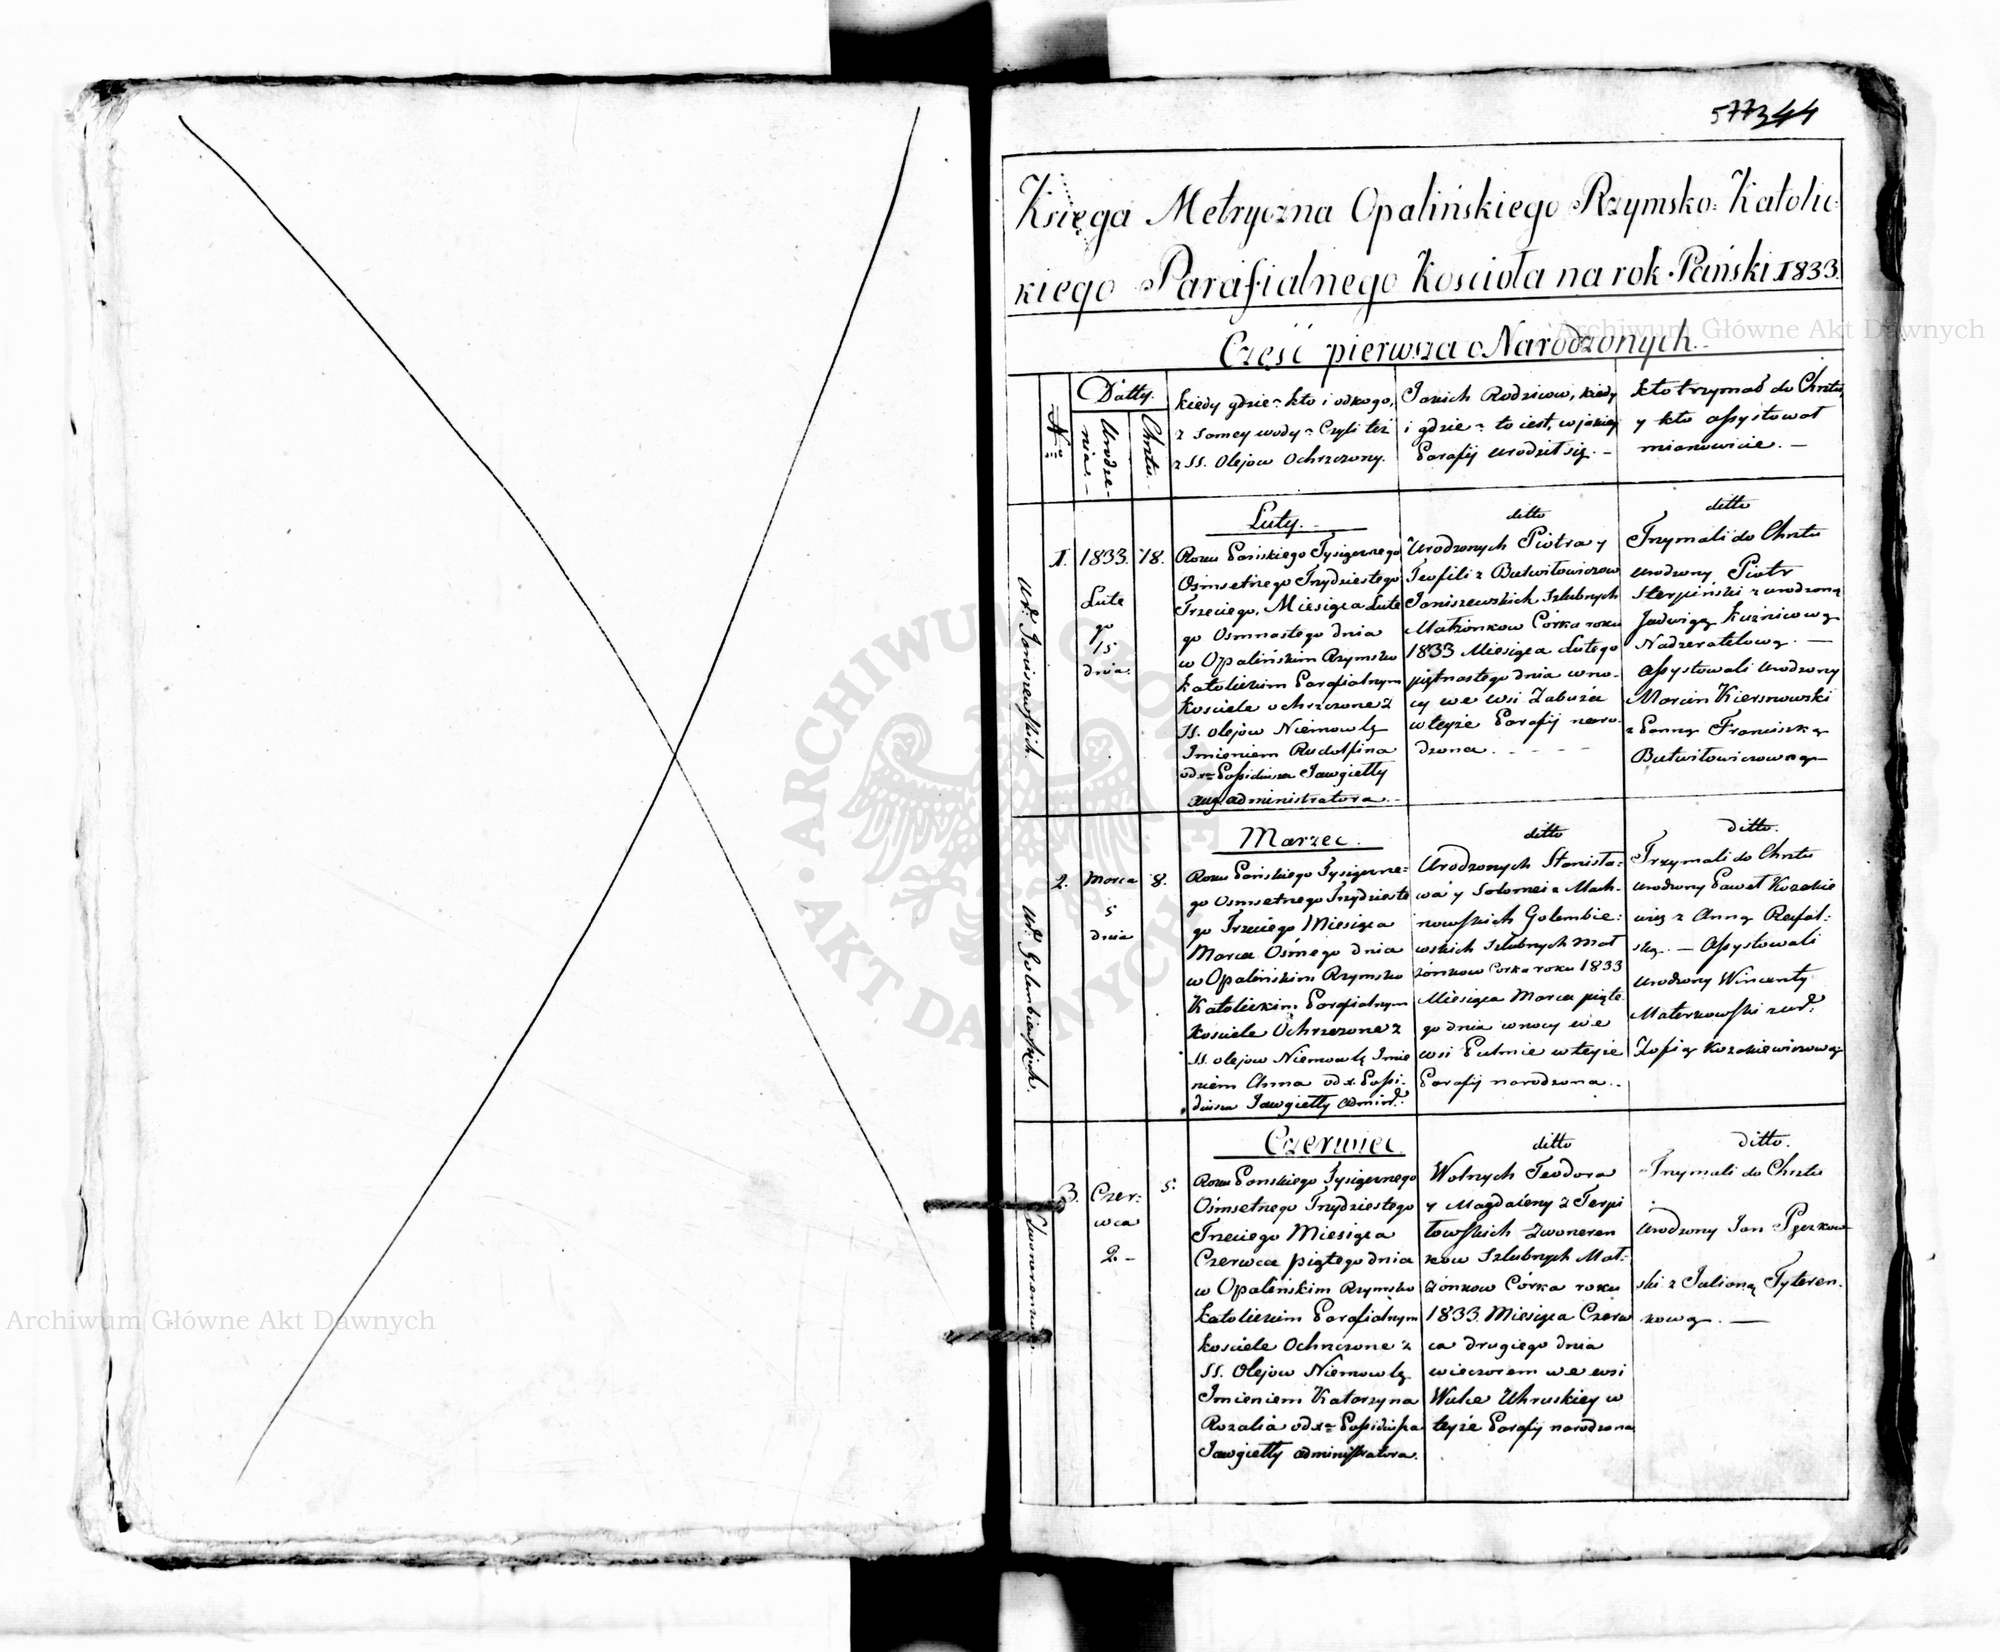 577344
Księga Metryczna Opalińskiego Rzymsko: Katolic:
kiego Parafialnego Kościoła na rok Pański 1833.
Część pierwsza o Narodzonych.
No
Datty.
Urodze-
nia. -
Chrztu.
kiedy gdzie kto i od kogo,
z samey wody Czyli też
z SS. Olejow Ochrzczony.
Jakich Rodzicow, kiedy
i gdzie to iest, w jakiey
Parafij urodził się. -
kto trzymał do Chrztu,
y kto assystował
mianowicie. -
Ur: Janiszewskich.
1.
1833.
Lute
go
15
dnia.
18.
Luty. -
Roku Pańskiego Tysiącznego
Ośmsetnego Trzydziestego
Trzeciego, Miesiąca Lute
go Osmnastego dnia
w Opalińskim Rzymsko
Katolickim Parafialnym
Kościele ochrzczone z
SS. olejow Niemowlę
Imieniem Rudolfina
od X Possidiusza Jawgiełły
Aug administratora. -
ditto
Urodzonych Piotra y
Teofili z Butwiłowiczow
Janiszewskich Szlubnych
Małżonkow Córka roku
1833 Miesiąca Lutego
piętnastego dnia w no-
cy we wsi Zabuża
w teyże Parafij naro-
dzona. - - - -
ditto
Trzymali do Chrztu
urodzony Piotr
Sterpiński z urodzoną
Jadwigą Kuźnicową
Nadzeratelową. -
assystowali urodzony
Marcin Kiersnowski
z Panną Franciszką
Butwiłowiczowną -
Ur: Golembiewskich.
2.
Marca
5
dnia
8.
Marzec.
Roku Pańskiego Tysiączne-
go Osmsetnego Trzydzieste
go Trzeciego Miesiąca
Marca Ośmego dnia
w Opalińskim Rzymsko
Katolickim Parafialnym
Kościele Ochrzczone z
SS. olejow Niemowlę Imie
niem Anna od X. Possi-
diusza Jawgiełły Admin:
ditto
Urodzonych Stanisła-
wa y Salomei z Mach-
nowskich Golembie-
wskich Szlubnych Mał
żonkow Corka roku 1833
Miesiąca Marca piąte
go dnia w nocy we
wsi Hulmie w teyże
Parafij narodzona..
ditto.
Trzymali do Chrztu
urodzony Paweł Kozakie
wicz z Anną Rafal-
ską. - Assystowali
urodzony Wincenty
Materkowski z ur:
Zofią Kozakiewiczową
3.
Czer-
wca
2. -
5.
Czerwiec.
Roku Pańskiego Tysiącznego
Ośmsetnego Trzydziestego
Trzeciego Miesiąca
Czerwca piątego dnia
w Opalińskim Rzymsko
Katolickim Parafialnym
Kościele Ochrzczone z
SS. Olejow Niemowlę
Imieniem Katarzyna
Rozalia od X Possidiusza
Jawgiełły administratora.
ditto
Wolnych Teodora
y Magdaleny z Terpi
łowskich Zwoneren
kow Szlubnych Mał-
żonkow Córka roku
1833. Miesiąca Czerw
ca drugiego dnia
wieczorem we wsi
Wulce Uhruskiey w
teyże Parafij narodzona
ditto.
Trzymali do Chrztu
urodzony Jan Pączkow-
ski z Julianą Tyteren-
kową. -
Archiwum Główne Akt Dawnych
Archiwum Główne Akt Dawnych
ARCHIWUM GŁÓWNE · AKT DAWNYCH ·